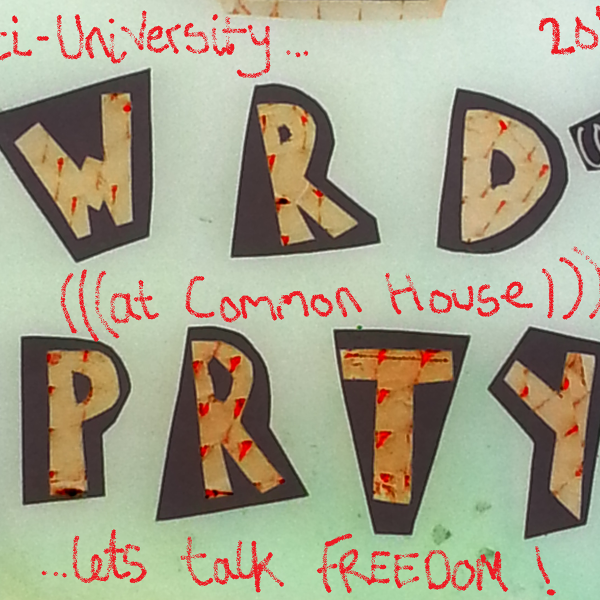 ti-University... 20
WRD
(((at Common House)))
PRTY
...lets talk FREEDOM!